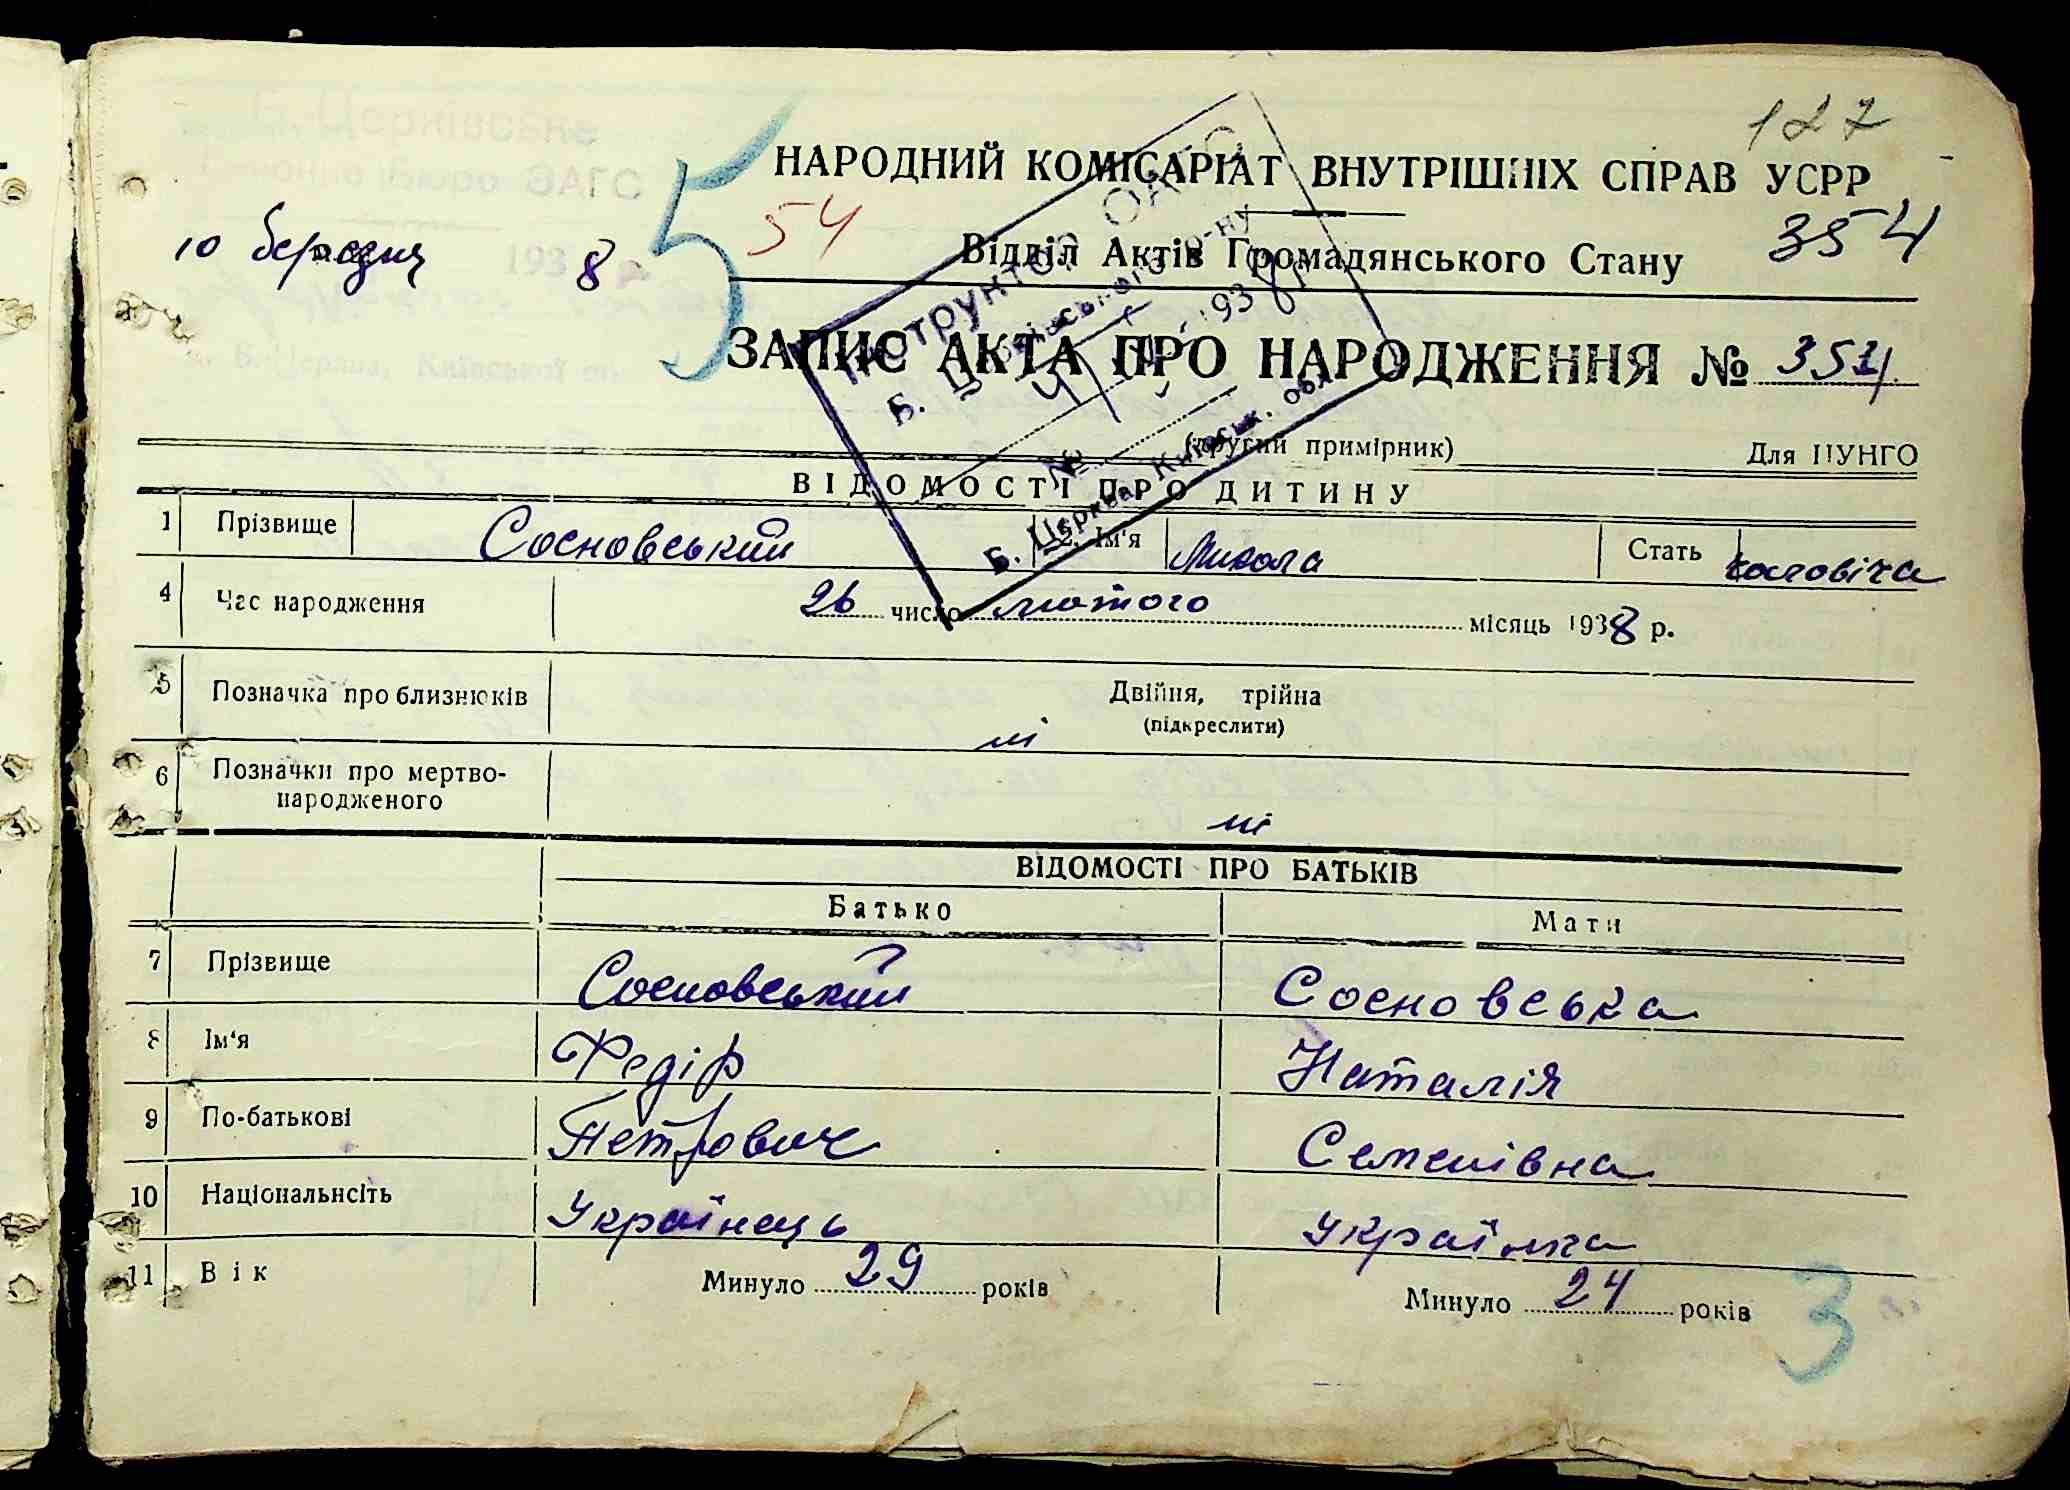 127
НАРОДНИЙ КОМІСАРІАТ ВНУТРІШНІХ СПРАВ УСРР
54
354
10 березня 1938
Відділ Актів Громадянського Стану
5
ЗАПИС АКТА ПРО НАРОДЖЕННЯ № 354
(другий примірник)
Для ЦУНГО
Інструктор ОАГС
Б. Церківського р-ну
1938 р.
№
Б. Церква, Київськ. обл.
ВІДОМОСТІ ПРО ДИТИНУ
1 Прізвище Сосновський 2. Ім'я Микола Стать чоловіча
4 Час народження 26 число лютого місяць 1938 р.
5 Позначка про близнюків Двійня, трійна
(підкреслити)
ні
6 Позначки про мертво-
народженого
ні
ВІДОМОСТІ ПРО БАТЬКІВ
Батько Мати
7 Прізвище Сосновський Сосновська
8 Ім'я Федір Наталія
9 По-батькові Петрович Семенівна
10 Національнсіть Українець Українка
11 Вік Минуло 29 років Минуло 24 років
3